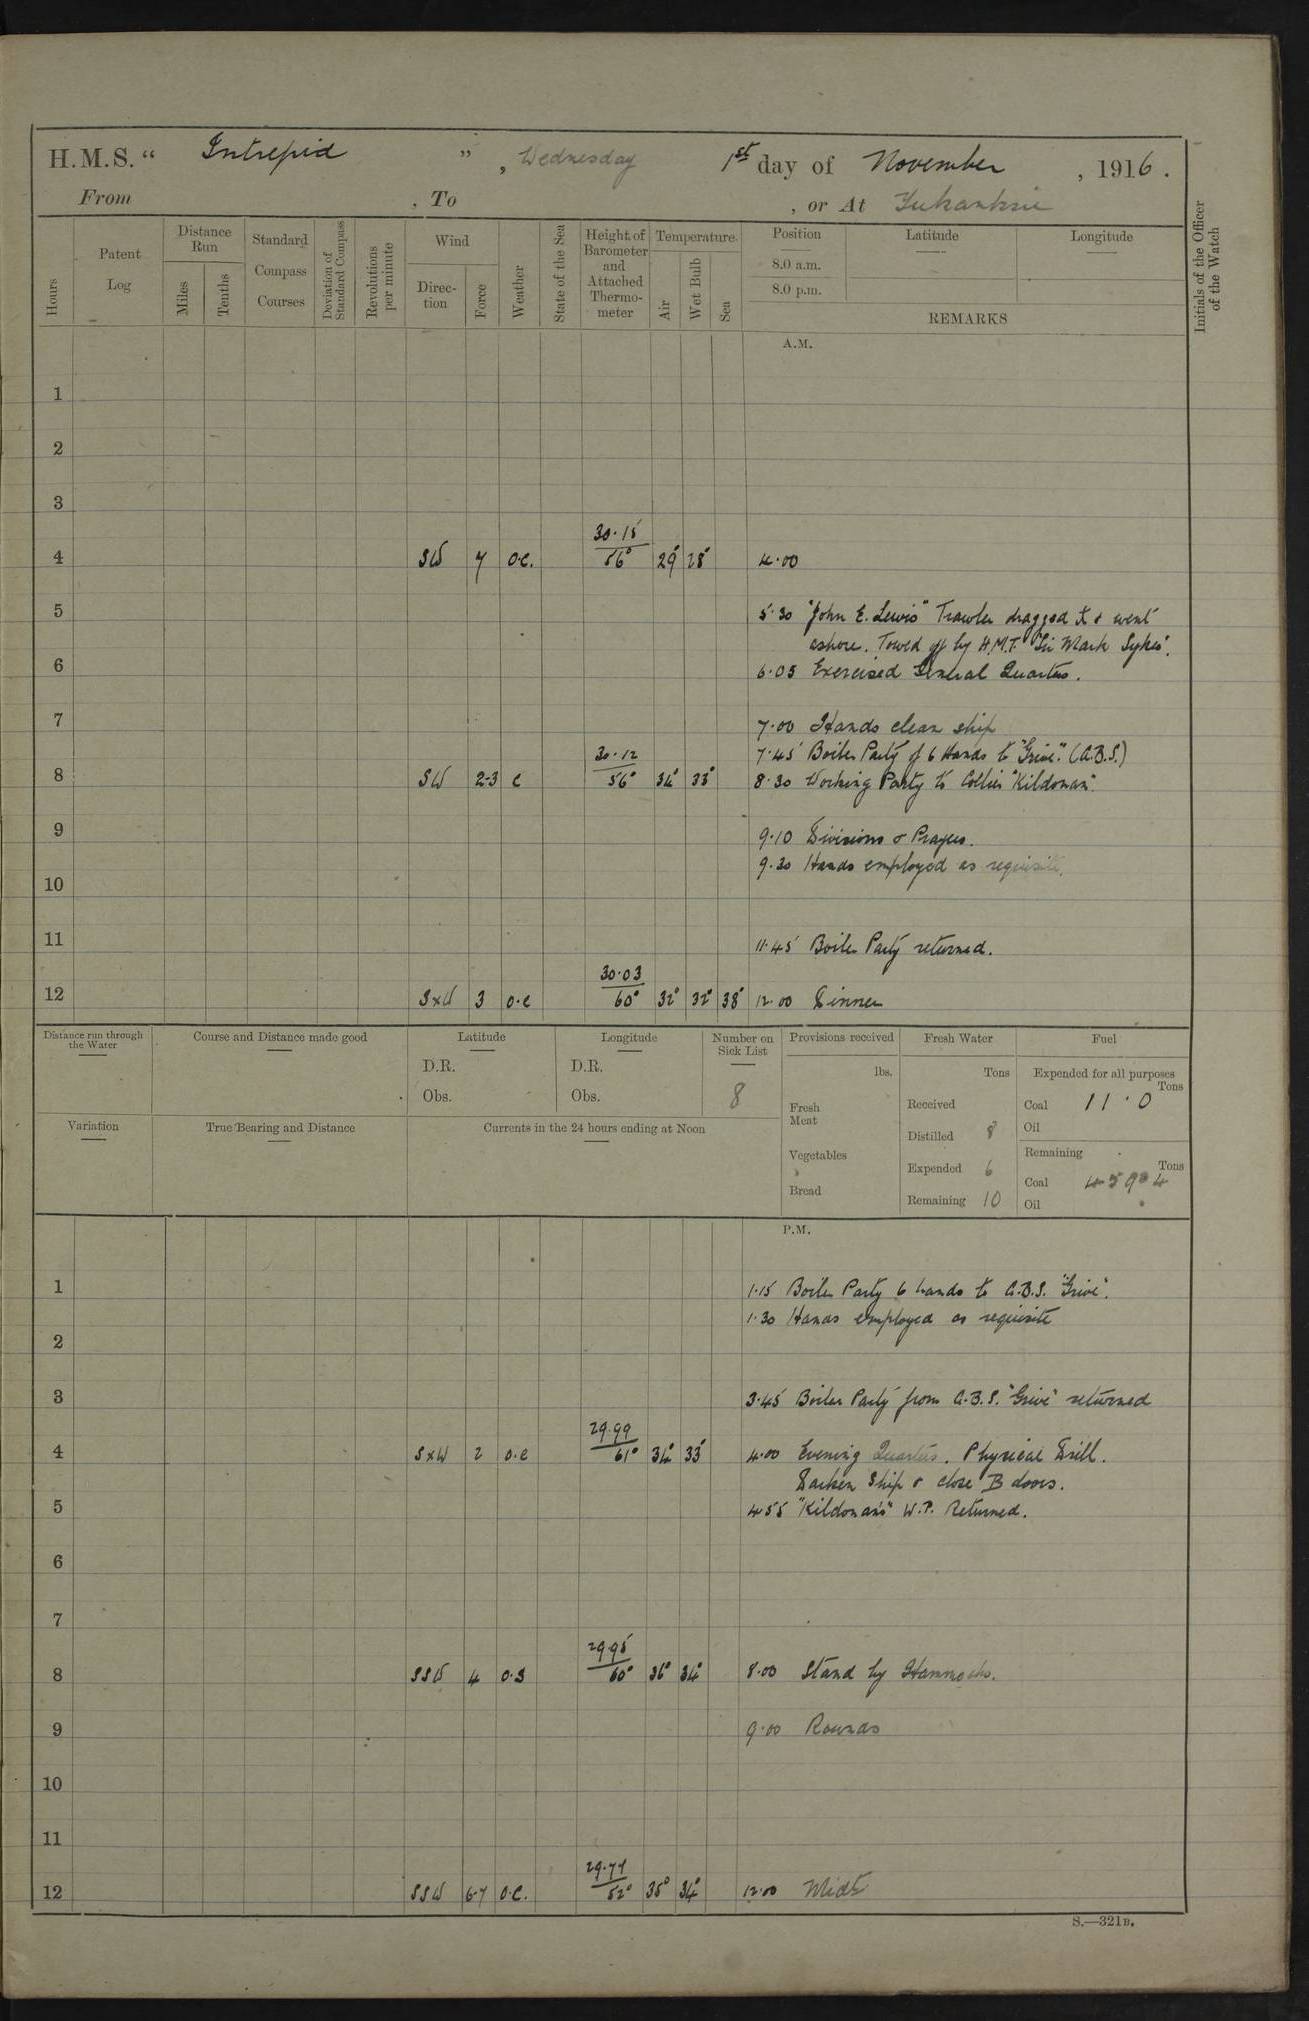 H.M.S. “ Intrepid ” , Wednesday 1st day of November , 1916 .
From , To , or At Yukanskie
Hours
Patent Log
Distance Run
Miles
Tenths
Standard Compass Courses
Deviation of Standard Compass
Revolutions per minute
Wind
Direction
Force
Weather
State of the Sea
Height of Barometer and Attached Thermometer
Temperature
Air
Wet Bulb
Sea
Position
8.0 a.m.
8.0 p.m.
Latitude
Longitude
REMARKS
Initials of the Officer of the Watch
A.M.
1
2
3
4 SW 7 o.c. 30.15 56° 29° 28° 4.00
5 5.30 "John E. Lewis" Trawler dragged & went
ashore. Towed off by H.M.T. "Sir Mark Sykes".
6 6.05 Exercised General Quarters.
7 7.00 Hands clean ship
7.45 Boiler Party of 6 Hands to "Grive". (A.B.S.)
8 SW 2-3 c 30.12 56° 34° 33° 8.30 Working Party to Collier "Kildonan".
9 9.10 Divisions & Prayers.
9.30 Hands employed as requisite.
10
11 11.45 Boiler Party returned.
12 SxW 3 o.c 30.03 60° 32° 32° 38° 12.00 Dinner
Distance run through the Water
Course and Distance made good
Latitude
D.R.
Obs.
Longitude
D.R.
Obs.
Number on Sick List
8
Provisions received
lbs.
Fresh Meat
Vegetables
Bread
Fresh Water
Tons
Received
Distilled 8
Expended 6
Remaining 10
Fuel
Expended for all purposes
Tons
Coal 11.0
Oil
Remaining
Tons
Coal 459.4
Oil
Variation
True Bearing and Distance
Currents in the 24 hours ending at Noon
P.M.
1 1.15 Boiler Party 6 hands to A.B.S. "Grive".
1.30 Hands employed as requisite
2
3 3.45 Boiler Party from A.B.S. "Grive" returned
4 SxW 2 o.c 29.99 61° 34° 33° 4.00 Evening Quarters. Physical Drill.
Darken Ship & close B doors.
5 4.55 "Kildonan's" W.P. Returned.
6
7
8 SSW 4 o.s 29.95 60° 36° 34° 8.00 Stand by Hammocks.
9 9.00 Rounds
10
11
12 SSW 6-7 o.c. 29.79 52° 35° 34° 12.00 Midt
S.—321B.